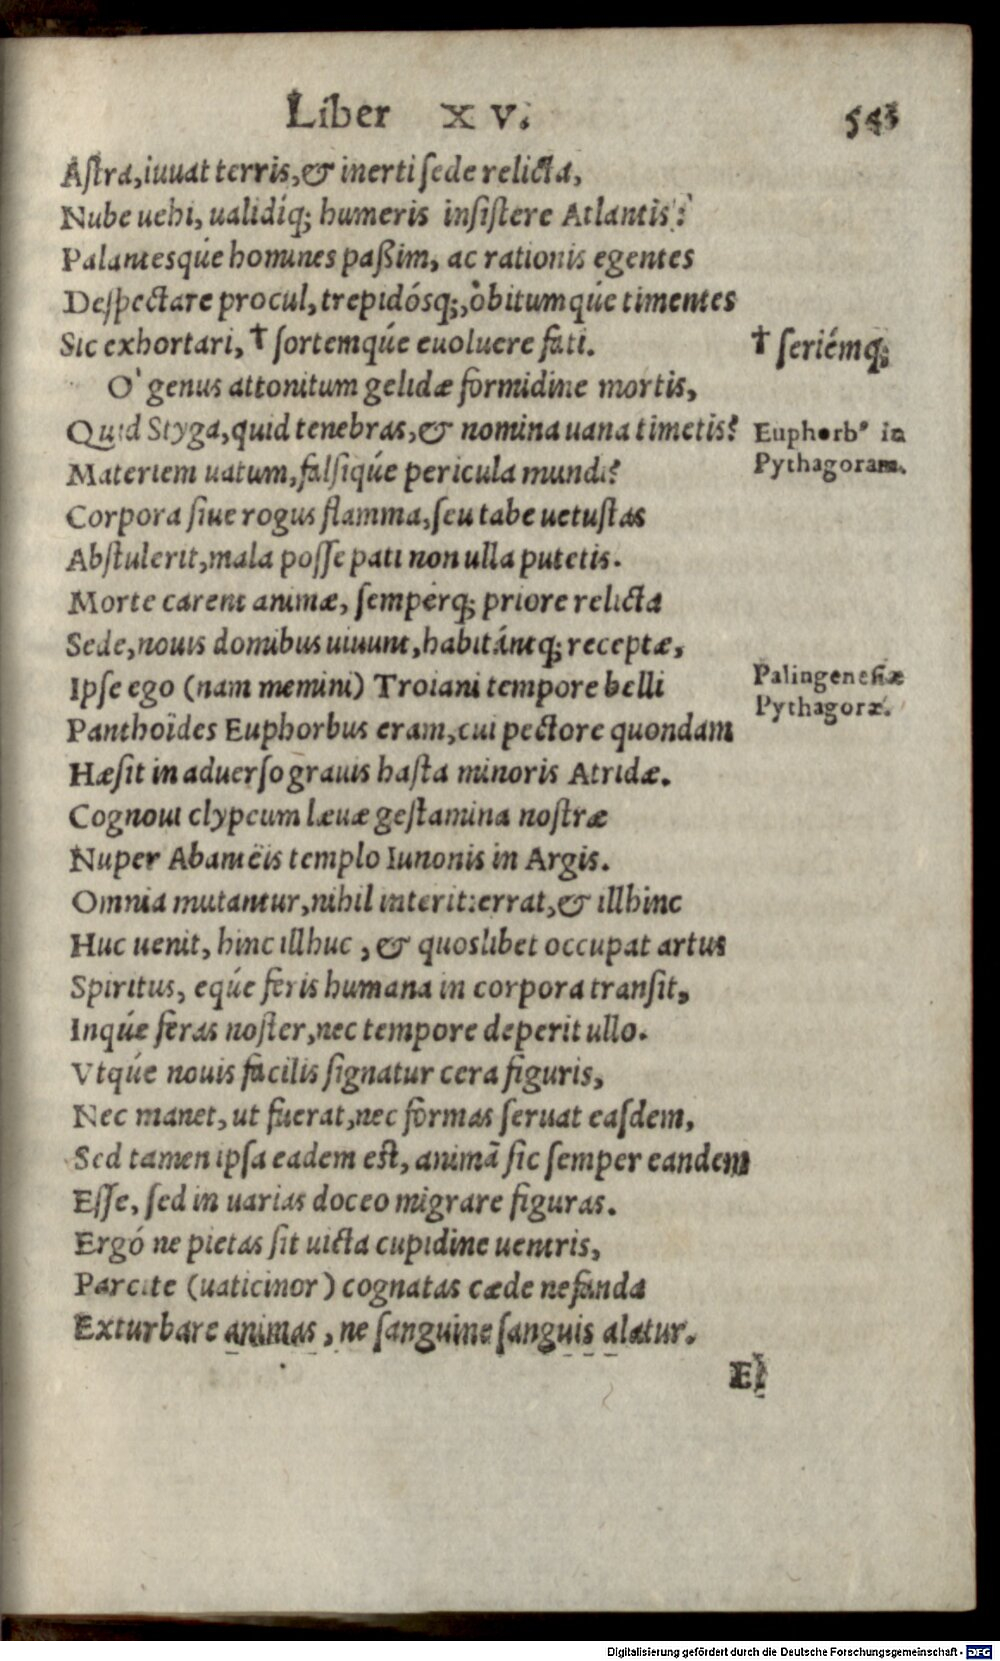 Liber XV. 543
Aſtra, iuuat terris, & inerti ſede relicta,
Nube uehi, ualidíq; humeris inſiſtere Atlantis:
Palantesqúe homines paßim, ac rationis egentes
Deſpectare procul, trepidósq;, òbitumqúe timentes
Sic exhortari, † ſortemqúe euoluere fati.
† ſeriémq;
O' genus attonitum gelidæ formidine mortis,
Quid Styga, quid tenebras, & nomina uana timetis?
Euphorbꝰ in
Pythagoram.
Materiem uatum, falſiqúe pericula mundi?
Corpora ſiue rogus flamma, ſeu tabe uetuſtas
Abſtulerit, mala poſſe pati non ulla putetis.
Morte carent animæ, ſempérq; priore relicta
Sede, nouis domibus uiuunt, habitántq; receptæ,
Ipſe ego (nam memini) Troiani tempore belli
Palingeneſiæ
Pythagoræ.
Panthoïdes Euphorbus eram, cui pectore quondam
Hæſit in aduerſo grauis haſta minoris Atridæ.
Cognoui clypeum læuæ geſtamina noſtræ
Nuper Abantëis templo Iunonis in Argis.
Omnia mutantur, nihil interit: errat, & illhinc
Huc uenit, hinc illhuc, & quoslibet occupat artus
Spiritus, eqúe feris humana in corpora tranſit,
Inqúe feras noſter, nec tempore deperit ullo.
Vtqúe nouis facilis ſignatur cera figuris,
Nec manet, ut fuerat, nec formas ſeruat eaſdem,
Sed tamen ipſa eadem eſt, animã ſic ſemper eandem
Eſſe, ſed in uarias doceo migrare figuras.
Ergó ne pietas ſit uicta cupidine uentris,
Parcite (uaticinor) cognatas cæde nefanda
Exturbare animas, ne ſanguine ſanguis alatur.
Et
Digitalisierung gefördert durch die Deutsche Forschungsgemeinschaft - DFG